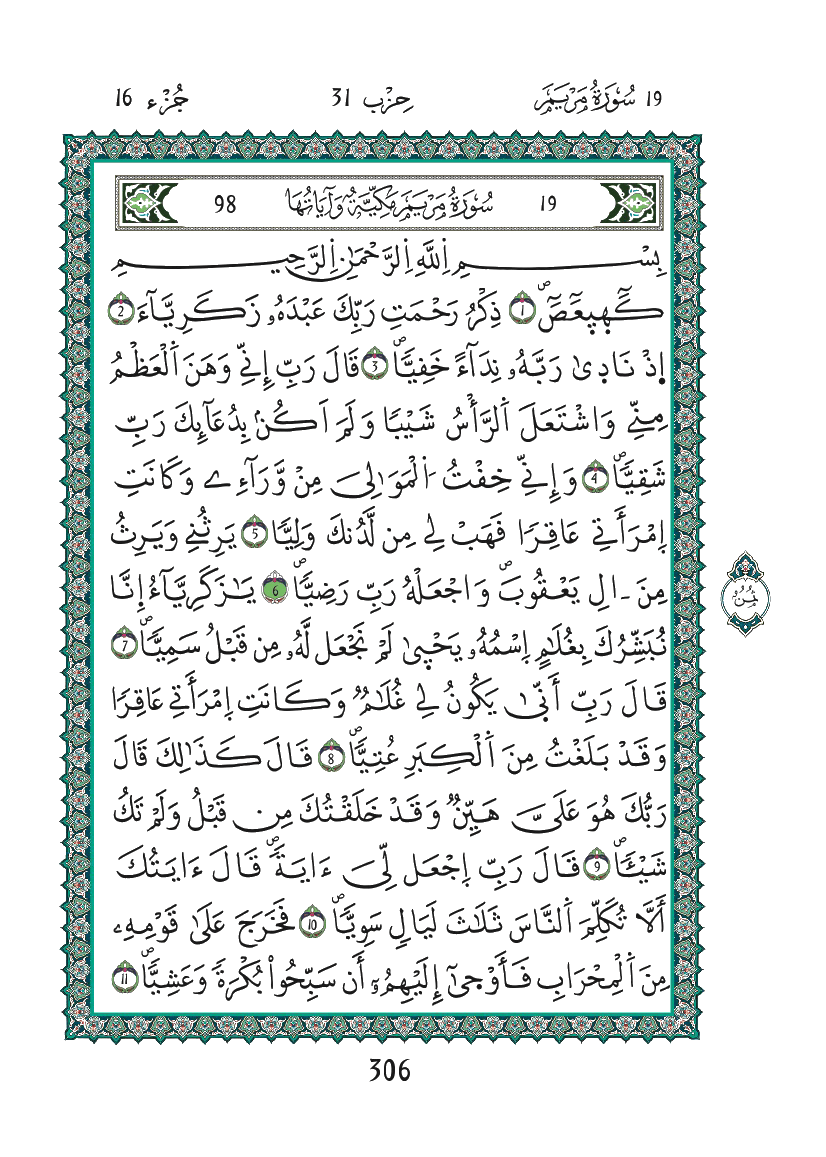 19 سُورَةُ مَرْيَمَ
حِزْب 31
جُزْء 16
19 سُورَةُ مَرْيَمَ مَكِّيَّةٌ وَآيَاتُهَا 98
بِسْمِ اِ۬للَّهِ اِ۬لرَّحْمَٰنِ اِ۬لرَّحِيمِ
كَٓهَيَعَٓصَٓۖ 1 ذِكْرُ رَحْمَتِ رَبِّكَ عَبْدَهُۥ زَكَرِيَّآءَ 2
إِذْ نَادَىٰ رَبَّهُۥ نِدَآءً خَفِيّٗاۖ 3 قَالَ رَبِّ إِنِّے وَهَنَ اَ۬لْعَظْمُ
مِنِّے وَاشْتَعَلَ اَ۬لرَّأْسُ شَيْبٗا وَلَمَ اَكُنۢ بِدُعَآئِكَ رَبِّ
شَقِيّٗاۖ 4 وَإِنِّے خِفْتُ اُ۬لْمَوَٰلِيَ مِنْ وَّرَآءِے وَكَانَتِ
اِمْرَأَتِے عَاقِرٗا فَهَبْ لِے مِن لَّدُنكَ وَلِيّٗا 5 يَرِثُنِے وَيَرِثُ
مِنَ اٰلِ يَعْقُوبَۖ وَاجْعَلْهُ رَبِّ رَضِيّٗاۖ 6 يَٰزَكَرِيَّآءُ اِ۪نَّا
نُبَشِّرُكَ بِغُلَٰمٍ اِ۪سْمُهُۥ يَحْيَىٰ لَمْ نَجْعَل لَّهُۥ مِن قَبْلُ سَمِيّٗاۖ 7
قَالَ رَبِّ أَنَّىٰ يَكُونُ لِے غُلَٰمٞ وَكَانَتِ اِمْرَأَتِے عَاقِرٗا
وَقَدْ بَلَغْتُ مِنَ اَ۬لْكِبَرِ عُتِيّٗاۖ 8 قَالَ كَذَٰلِكَ قَالَ
رَبُّكَ هُوَ عَلَيَّ هَيِّنٞ وَقَدْ خَلَقْتُكَ مِن قَبْلُ وَلَمْ تَكُ
شَيْـٔٗاۖ 9 قَالَ رَبِّ اِجْعَل لِّيَ ءَايَةٗۖ قَالَ ءَايَتُكَ
أَلَّا تُكَلِّمَ اَ۬لنَّاسَ ثَلَٰثَ لَيَالٖ سَوِيّٗاۖ 10 فَخَرَجَ عَلَىٰ قَوْمِهِۦ
مِنَ اَ۬لْمِحْرَابِ فَأَوْحَىٰٓ إِلَيْهِمُۥٓ أَن سَبِّحُواْ بُكْرَةٗ وَعَشِيّٗاۖ 11
ثُمُن
306